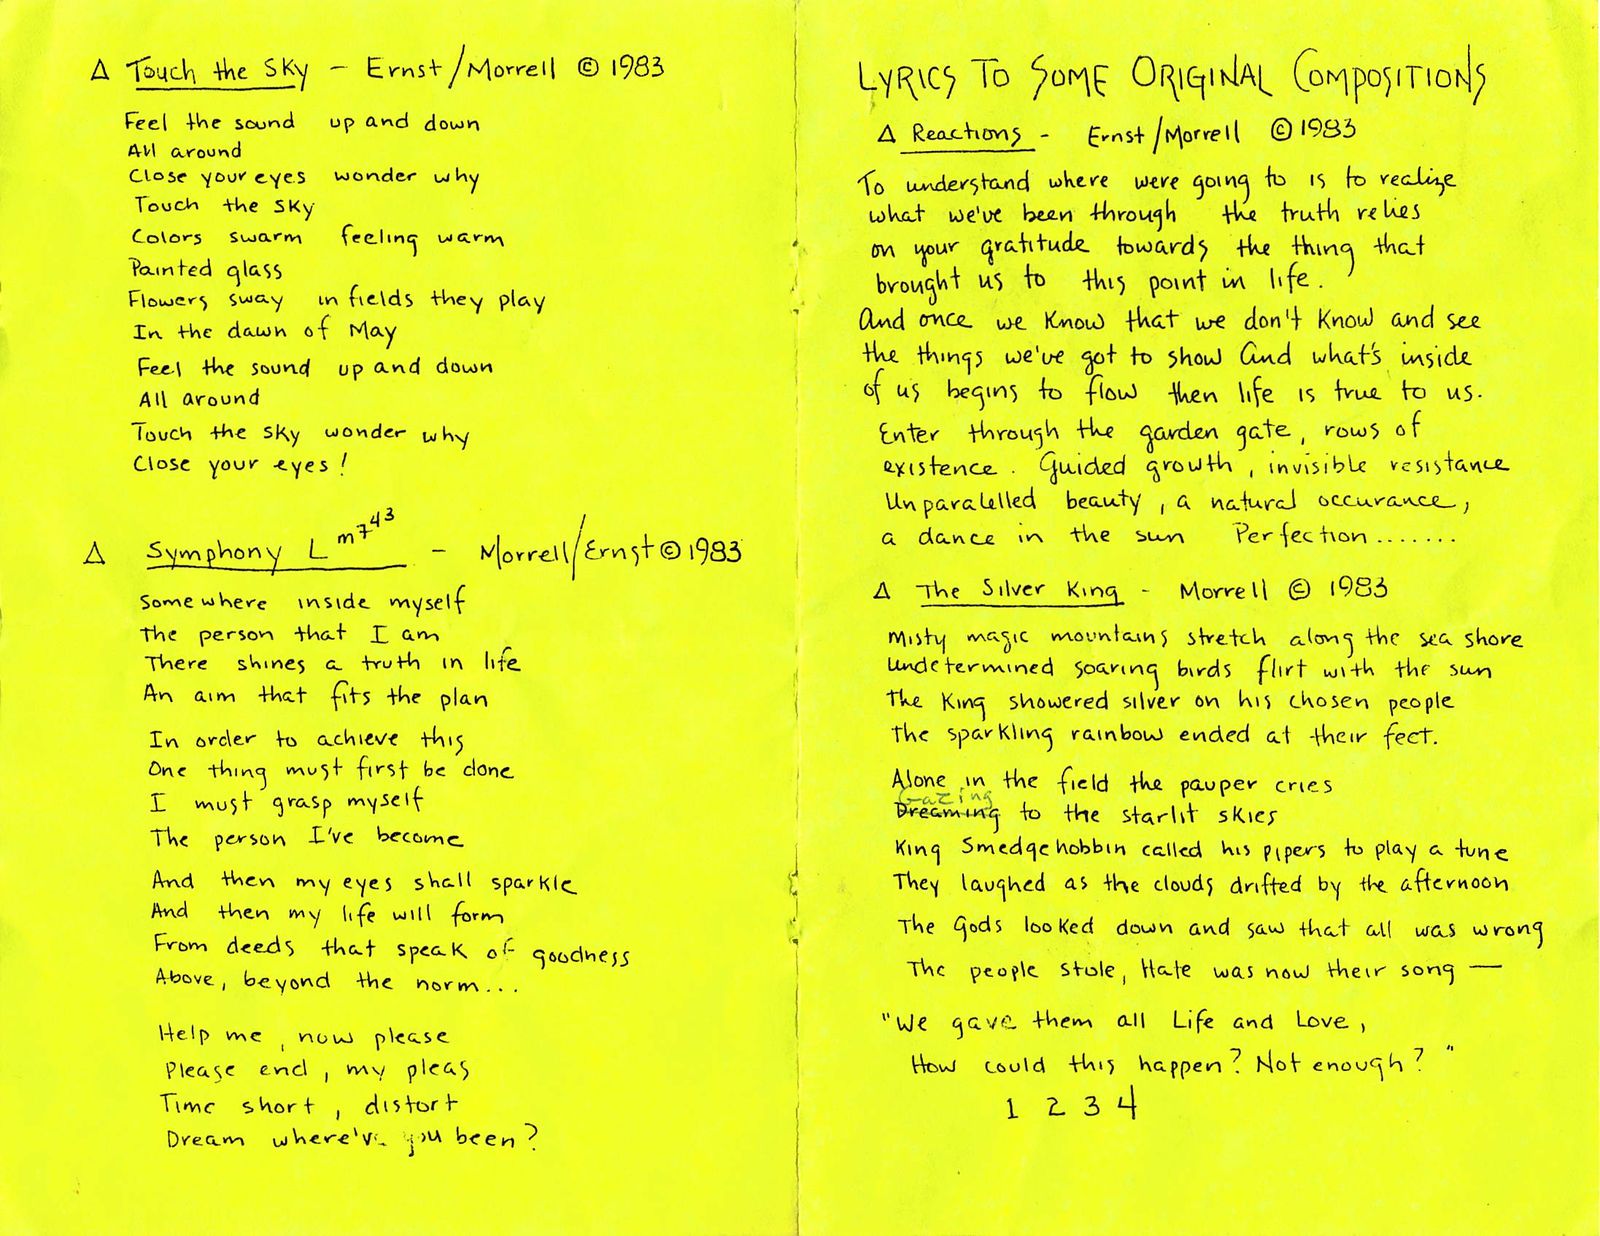 Δ Touch the Sky - Ernst/Morrell © 1983
Feel the sound up and down
All around
Close your eyes wonder why
Touch the sky
Colors swarm feeling warm
Painted glass
Flowers sway in fields they play
In the dawn of May
Feel the sound up and down
All around
Touch the sky wonder why
Close your eyes!
Δ Symphony L m7 43 - Morrell/Ernst © 1983
Somewhere inside myself
The person that I am
There shines a truth in life
An aim that fits the plan
In order to achieve this
One thing must first be done
I must grasp myself
The person I've become
And then my eyes shall sparkle
And then my life will form
From deeds that speak of goodness
Above, beyond the norm...
Help me, now please
Please end, my pleas
Time short, distort
Dream where've you been?
LYRICS TO SOME ORIGINAL COMPOSITIONS
Δ Reactions - Ernst/Morrell © 1983
To understand where were going to is to realize
what we've been through the truth relies
on your gratitude towards the thing that
brought us to this point in life.
And once we know that we don't know and see
the things we've got to show and what's inside
of us begins to flow then life is true to us.
Enter through the garden gate, rows of
existence. Guided growth, invisible resistance
Unparalelled beauty, a natural occurance,
a dance in the sun Perfection.......
Δ The Silver King - Morrell © 1983
Misty magic mountains stretch along the sea shore
Undetermined soaring birds flirt with the sun
The King showered silver on his chosen people
The sparkling rainbow ended at their feet.
Alone in the field the pauper cries
Gazing
Dreaming to the starlit skies
King Smedgehobbin called his pipers to play a tune
They laughed as the clouds drifted by the afternoon
The Gods looked down and saw that all was wrong
The people stole, Hate was now their song —
"We gave them all Life and Love,
How could this happen? Not enough?"
1 2 3 4